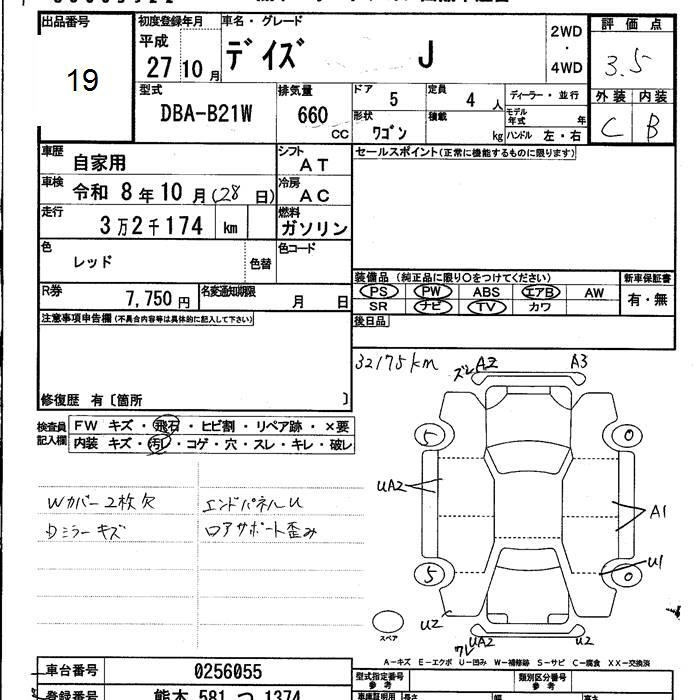 出品番号
19
初度登録年月
平成
27 10 月
車名・グレード
デイズ J
2WD
・
4WD
評価点
3.5
外装 内装
C B
型式
DBA-B21W
排気量
660 CC
ドア
5
定員
4 人
形状
ワゴン
積載
kg
ディーラー・並行
モデル年式 年
ハンドル 左・右
車歴
自家用
シフト
AT
車検
令和 8 年 10 月 (28 日)
冷房
AC
走行
3万2千174 km
燃料
ガソリン
色
レッド
色替
色コード
R券
7,750 円
名変通知期限
月 日
セールスポイント(正常に機能するものに限ります)
装備品 (純正品に限り○をつけてください)
PS PW ABS エアB AW
SR ナビ TV カワ
新車保証書
有・無
後日品
注意事項申告欄 (不具合内容等は具体的に記入して下さい)
修復歴 有〔箇所 〕
検査員記入欄
FW キズ・飛石・ヒビ割・リペア跡・×要
内装 キズ・汚れ・コゲ・穴・スレ・キレ・破レ
Wカバー2枚欠
Dミラーキズ
エンドパネルU
ロアサポート歪み
32175km
ズレ A2
A3
5
0
UA2
A1
5
0
U1
U2
ワレ UA2
U2
スペア
A-キズ E-エクボ U-凹み W-補修跡 S-サビ C-腐食 XX-交換済
車台番号
0256055
登録番号
熊本 581 つ 1374
型式指定番号
参考
類別区分番号
参考